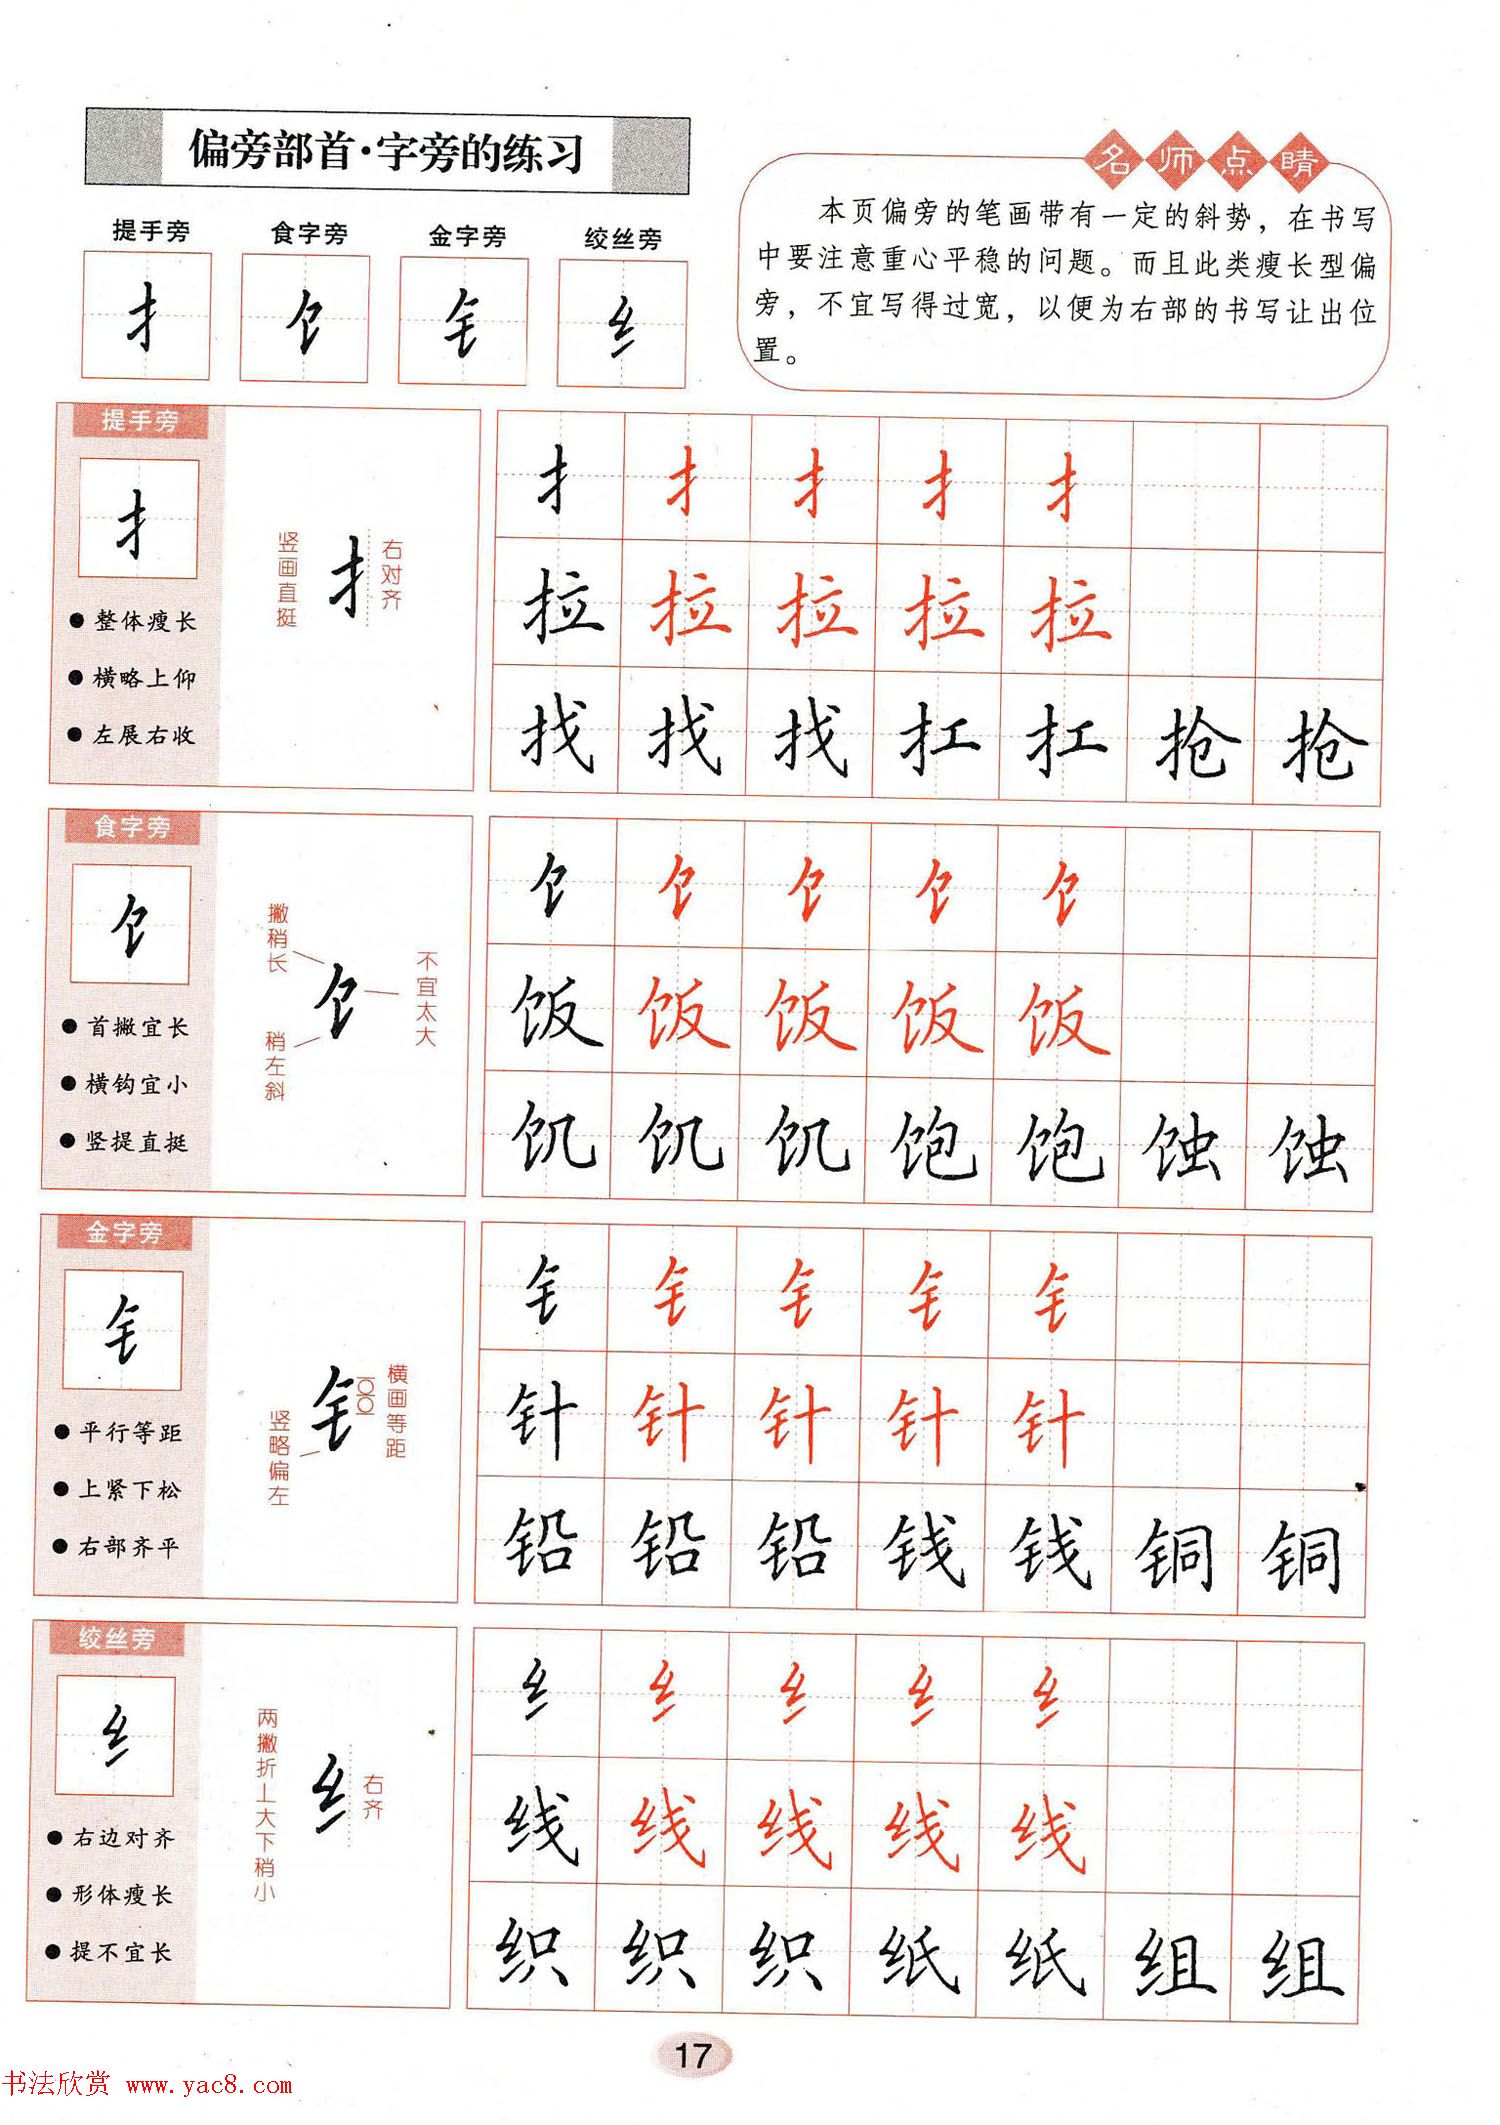 偏旁部首·字旁的练习
名师点睛
本页偏旁的笔画带有一定的斜势，在书写
中要注意重心平稳的问题。而且此类瘦长型偏
旁，不宜写得过宽，以便为右部的书写让出位
置。
提手旁 食字旁 金字旁 绞丝旁
扌 饣 钅 纟
提手旁
扌
整体瘦长
横略上仰
左展右收
竖画直挺
扌
右对齐
扌 扌 扌 扌 扌
拉 拉 拉 拉 拉
找 找 找 扛 扛 抢 抢
食字旁
饣
首撇宜长
横钩宜小
竖提直挺
撇稍长
稍左斜
饣
不宜太大
饣 饣 饣 饣 饣
饭 饭 饭 饭 饭
饥 饥 饥 饱 饱 蚀 蚀
金字旁
钅
平行等距
上紧下松
右部齐平
竖略偏左
钅
横画等距
钅 钅 钅 钅 钅
针 针 针 针 针
铅 铅 铅 钱 钱 铜 铜
绞丝旁
纟
右边对齐
形体瘦长
提不宜长
两撇折上大下稍小
纟
右齐
纟 纟 纟 纟 纟
线 线 线 线 线
织 织 织 纸 纸 组 组
17
书法欣赏 www.yac8.com